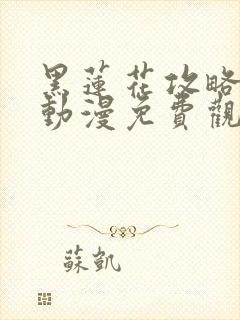 黑蓮花攻略
動漫免費觀
蘇凱